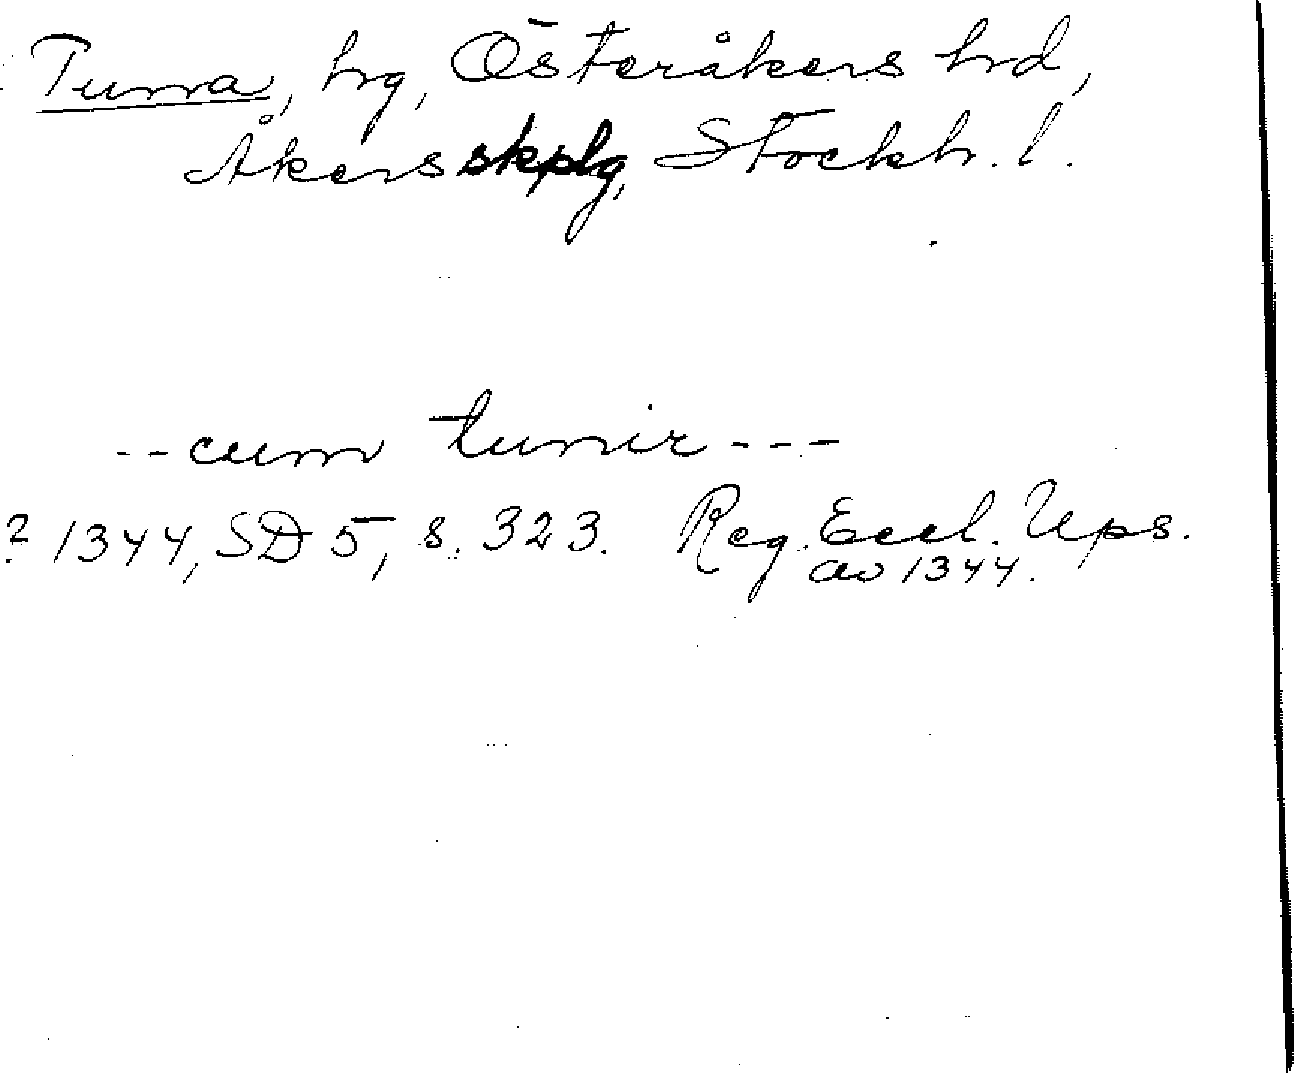 Tuna, hg, Österåkers hd,
Åkers skplg, Stockh. l.
-- cum tunir ---
? 1344, SD 5, s. 323. Reg. Eccl. Ups.
av 1344.